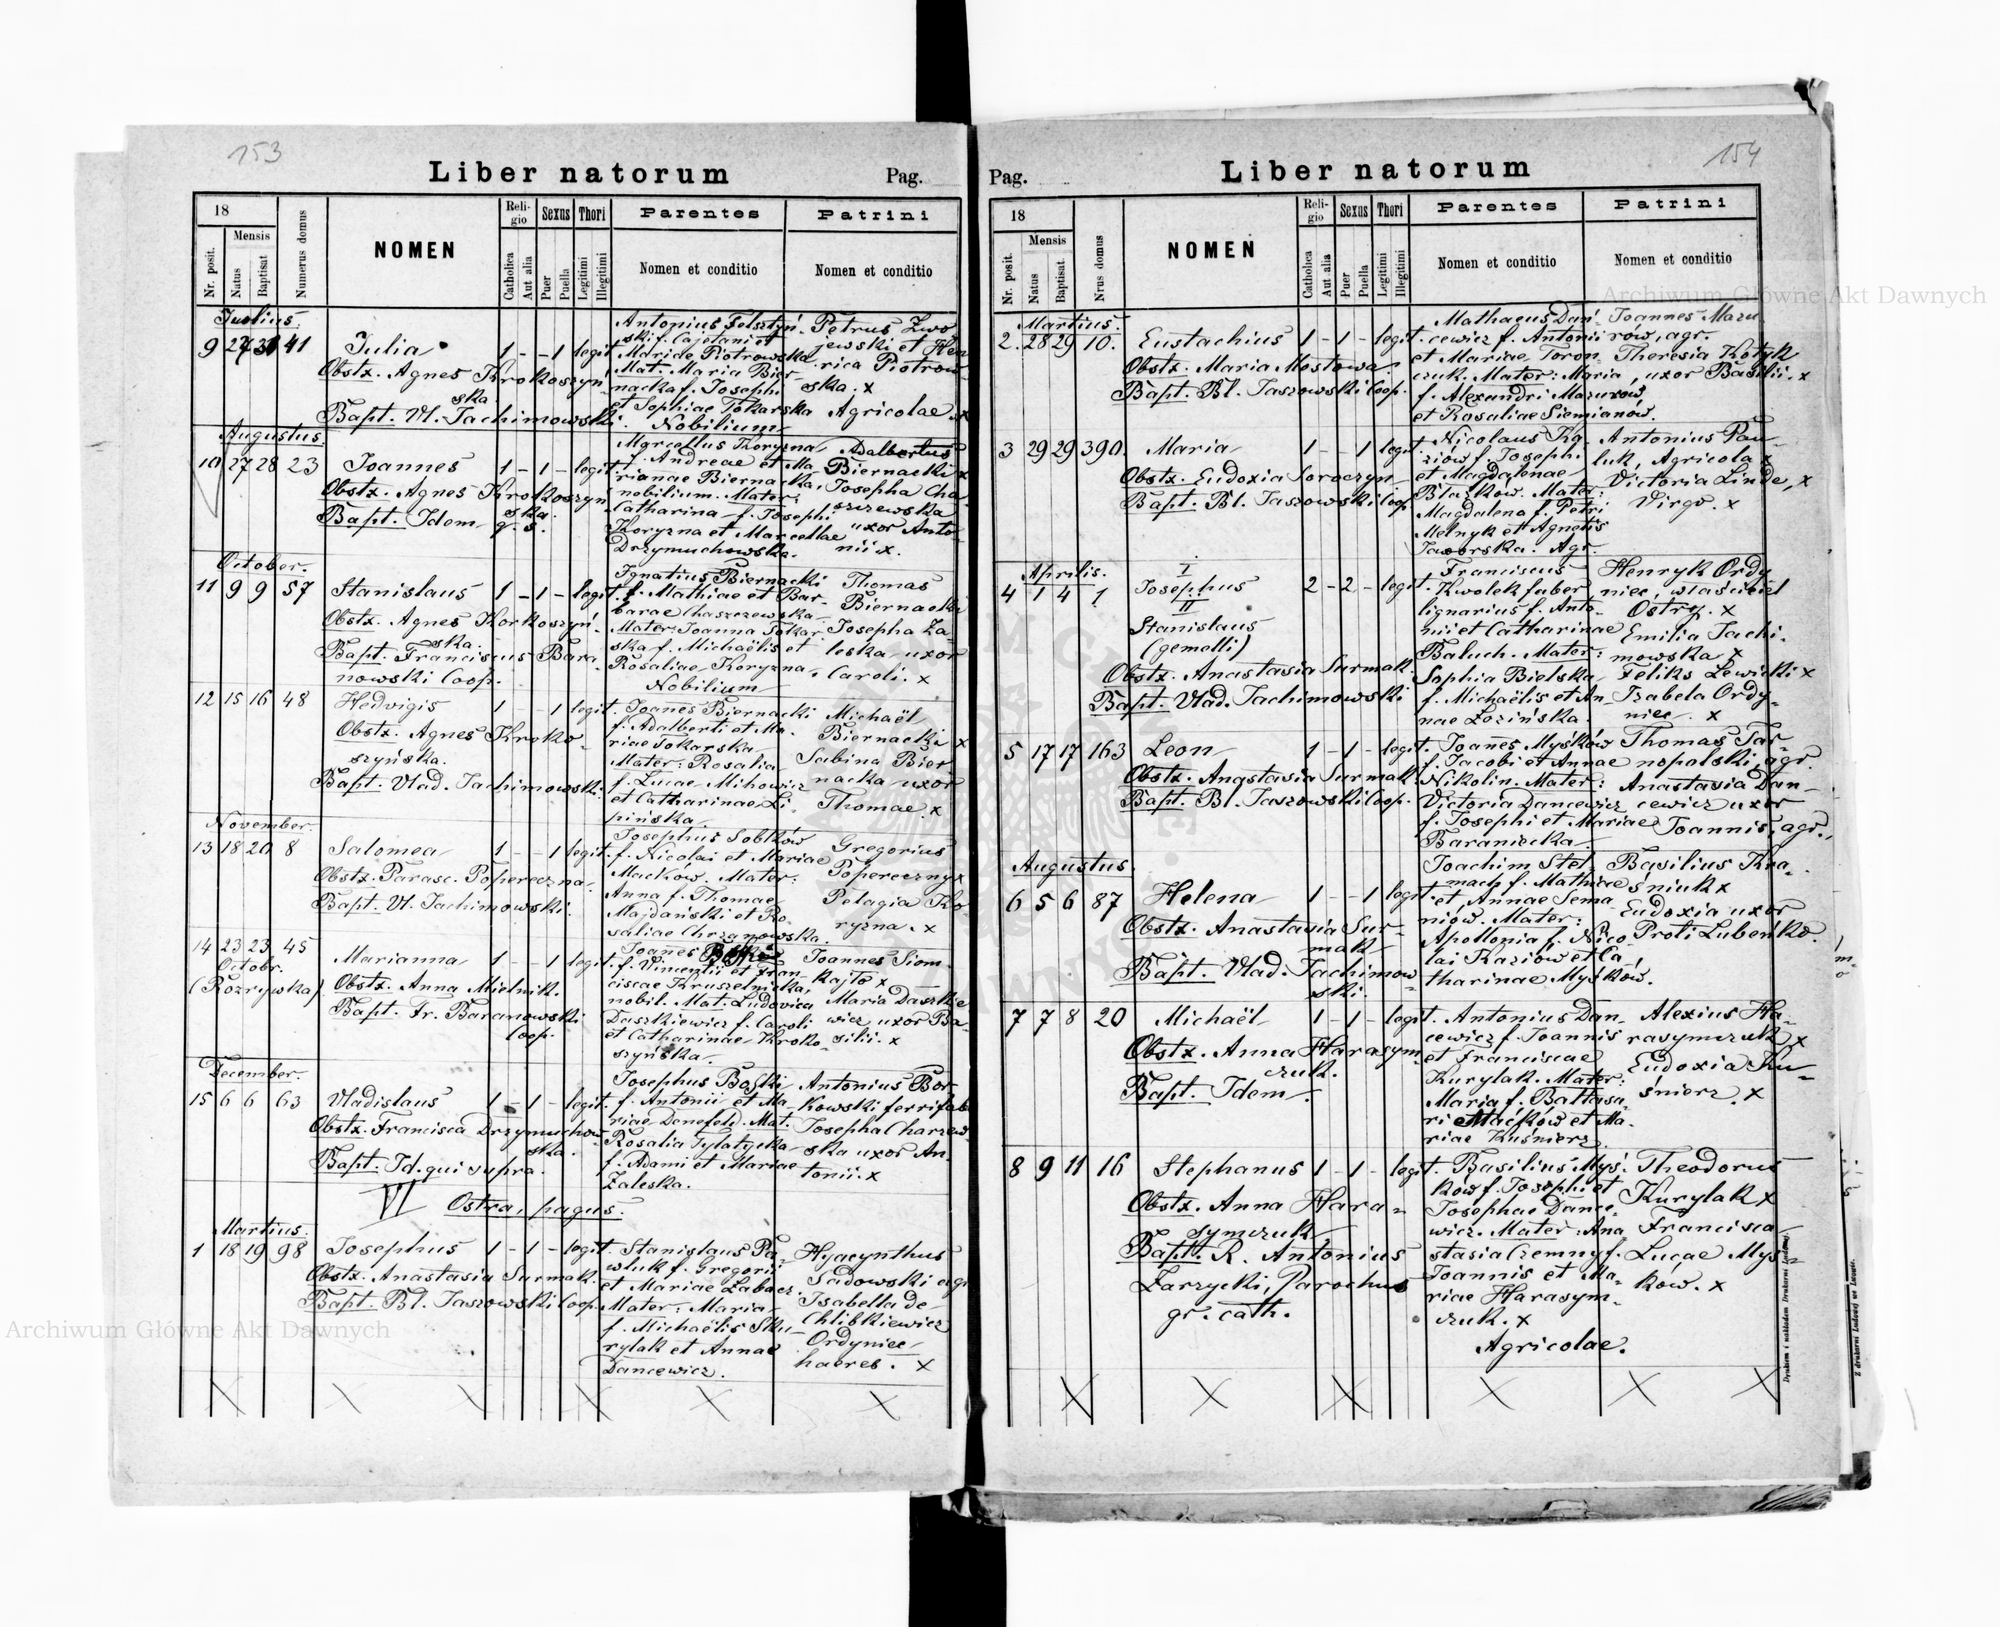 153
Liber natorum
Pag.
18
Mensis
Nr. posit.
Natus
Baptisat
Numerus domus
NOMEN
Religio
Catholica
Aut alia
Sexus
Puer
Puella
Thori
Legitimi
Illegitimi
Parentes
Nomen et conditio
Patrini
Nomen et conditio
Julius.
9 27 31 41 Julia 1 - - 1 legit.
Obstz. Agnes Krokoszyń-
ska.
Bapt. Vl. Jachimowski.
Antonius Felsztyń-
ski f. Cajetani et
Mariae Piotrowska
Mat. Maria Bier-
nacka f. Josephi
et Sophiae Tokarska
Nobilium
Petrus Zwo
jewski et Hen
rica Piotrow-
ska. x
Agricolae x
Augustus.
10 27 28 23 Joannes 1 - 1 - legit.
Obstz. Agnes Krokoszyń
ska.
Bapt. Idem q. s.
Marcellus Koryzna
f. Andreae et Ma
rianae Biernacka,
nobilium. Mater:
Catharina f. Josephi
Koryzna et Marcellae
Drzymuchowska.
Adalbertus
Biernacki x
Josepha Cha-
szczewska
uxor Anto-
nii x.
October.
11 9 9 57 Stanislaus 1 - 1 - legit.
Obstz. Agnes Korkoszyń-
ska.
Bapt. Franciscus Bara-
nowski Coop.
Ignatius Biernacki
f. Mathiae et Bar-
barae Chaszczewska.
Mater: Joanna Tokar-
ska f. Michaëlis et
Rosaliae Koryzna.
Nobilium
Thomas
Biernacki
Josepha Za-
leska uxor
Caroli. x
12 15 16 48 Hedvigis 1 - - 1 legit.
Obstz. Agnes Kroko-
szyńska.
Bapt. Vlad. Jachimowski.
Joanes Biernacki
f. Adalberti et Ma-
riae Tokarska
Mater: Rosalia
f. Lucae Mihowicz
et Catharinae Li-
pińska.
Michaël
Biernacki x
Sabina Bier
nacka uxor
Thomae. x
November.
13 18 20 8 Salomea 1 - - 1 legit.
Obstz. Parasc. Popereczna.
Bapt. Vl. Jachimowski.
Josephus Sobków
f. Nicolai et Mariae
Maćków. Mater:
Anna f. Thomae
Majdański et Ro-
saliae Chrzanowska.
Gregorius
Popereczny x
Pelagia Ko-
ryzna. x
14 23 23 45 Marianna 1 - - 1 legit.
Octobr.
(Rozrywka)
Obstz. Anna Mielnik.
Bapt. Fr. Baranowski
Coop.
Joanes
f. Vincentii et Fran-
ciscae Kruszelnicka,
nobil. Mat: Ludovica
Daszkiewicz f. Caroli
et Catharinae Kroko-
szyńska.
Joannes Siom.
kajło x
Maria Daszkie
wicz uxor Ba-
silii. x
December.
15 6 6 63 Vladislaus 1 - 1 - legit.
Obstz. Francisca Drzymuchow-
ska.
Bapt. Id. qui supra.
Josephus Bojki
f. Antonii et Ma-
riae Denefeld. Mat.
Rosalia Tylatycka
f. Adami et Mariae
Zaleska.
Antonius Bor-
kowski ferrifab
Josepha Charzew-
ska uxor An-
tonii. x
VI Ostra, pagus.
Martius.
1 18 19 98 Josephus 1 - 1 - legit.
Obstz. Anastasia Surmak.
Bapt. Bl. Jaszowski Coop.
Stanislaus Pa-
wluk f. Gregorii
et Mariae Labacz.
Mater: Maria
f. Michaëlis Sku-
rylak et Annae
Dancewicz.
Hyacynthus
Sadowski agr
Isabella de
Chlibkiewicz
Ordyniec
haeres. x
154
Pag.
Liber natorum
18
Mensis
Nr. posit.
Natus
Baptisat.
Nrus domus
NOMEN
Religio
Catholica
Aut alia
Sexus
Puer
Puella
Thori
Legitimi
Illegitimi
Parentes
Nomen et conditio
Patrini
Nomen et conditio
Martius.
2. 28 29 10. Eustachius 1 - 1 - legit.
Obstz. Maria Mostowa.
Bapt. Bl. Jaszowski Coop.
Mathaeus Dan-
cewicz f. Antonii
et Mariae Toron-
czuk. Mater: Maria
f. Alexandri Mazurów
et Rosaliae Siemianów.
Joannes Mazu
rów, agr.
Theresia Kotyk
uxor Basilii. x
3 29 29 390. Maria 1 - - 1 legit.
Obstz. Eudoxia Soroczyn
Bapt. Bl. Jaszowski Coop
Nicolaus Ka-
ziów f. Josephi
et Magdalenae
Błażków. Mater:
Magdalena f. Petri
Melnyk et Agnetis
Jaworska. Agr.
Antonius Pau-
luk, Agricola x
Victoria Linde, x
Virgo. x
Aprilis.
4 1 4 1 I Josephus 2 - 2 - legit.
II
Stanislaus
(gemelli)
Obstz. Anastasia Surmak.
Bapt. Vlad. Jachimowski
Franciscus
Kwolek faber
lignarius f. Anto-
nii et Catharinae
Baluch. Mater:
Sophia Bielska
f. Michaëlis et An
nae Łozińska.
Henryk Ordy
niec, właściciel
Ostry. x
Emilia Jachi-
mowska x
Feliks Lewicki x
Izabela Ordy-
niec. x
5 17 17 163 Leon 1 - 1 - legit.
Obstz. Anastasia Surmak.
Bapt. Bl. Jaszowski Coop.
Joanes Myśków
f. Jacobi et Annae
Nikolin. Mater:
Victoria Dancewicz
f. Josephi et Mariae
Baraniecka
Thomas Tar-
nopolski, agr.
Anastasia Dan-
cewicz uxor
Joannis, agr.
Augustus.
6 5 6 87 Helena 1 - - 1 legit
Obstz. Anastasia Sur-
mak
Bapt. Vlad. Jachimow-
ski.
Joachim Stel
mach f. Mathiae
et Annae Sema
niów. Mater:
Apollonia f. Nico-
lai Kaziów et Ca
tharinae Myśków.
Basilius Kra-
śniuk x
Eudoxia uxor
Proti Lubeńko.
7 7 8 20 Michaël 1 - 1 - legit.
Obstz. Anna Harasym-
czuk.
Bapt. Idem.
Antonius Dan-
cewicz f. Joannis
et Franciscae
Kurylak. Mater:
Maria f. Baltasa-
ri Maćków et Ma-
riae Kuśnierz
Alexius Ha-
rasymczuk x
Eudoxia Ku-
śnierz. x
8 9 11 16 Stephanus 1 - 1 - legit.
Obstz. Anna Hara-
symczuk
Bapt. R. Antonius
Zarzycki, Parochus
gr. cath.
Basilius Myś-
ków f. Josephi et
Josephae Dance-
wicz. Mater: Ana
stasia Czemny f.
Joannis et Ma-
riae Harasym-
czuk. x
Agricolae.
Theodorus
Kurylak x
Francisca
Lucae Myś-
ków. x
Drukiem i nakładem Drukarni Ludowej.
Z drukarni Ludowej we Lwowie.
Archiwum Główne Akt Dawnych
Archiwum Główne Akt Dawnych